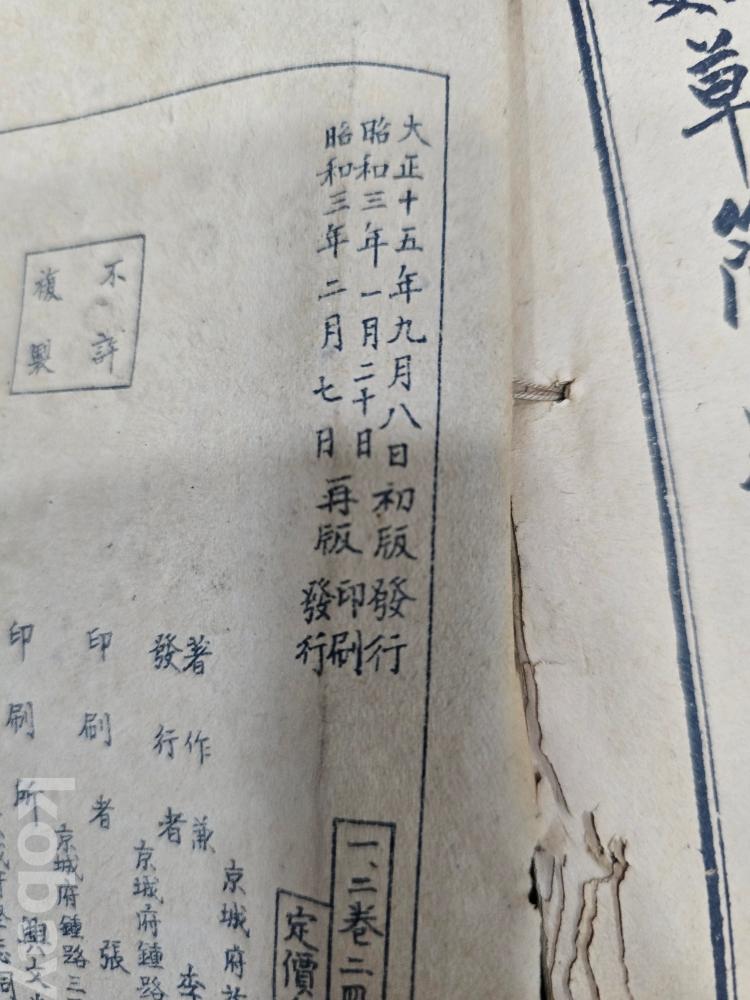 草
大正十五年九月八日初版發行
昭和三年一月二十日印刷
昭和三年二月七日再版發行
不許
複製
一、二卷二
定價
京城府
著作兼
發行者
京城府鍾路
李
印刷者
京城府鍾路三
張
印刷所
興文
kobay